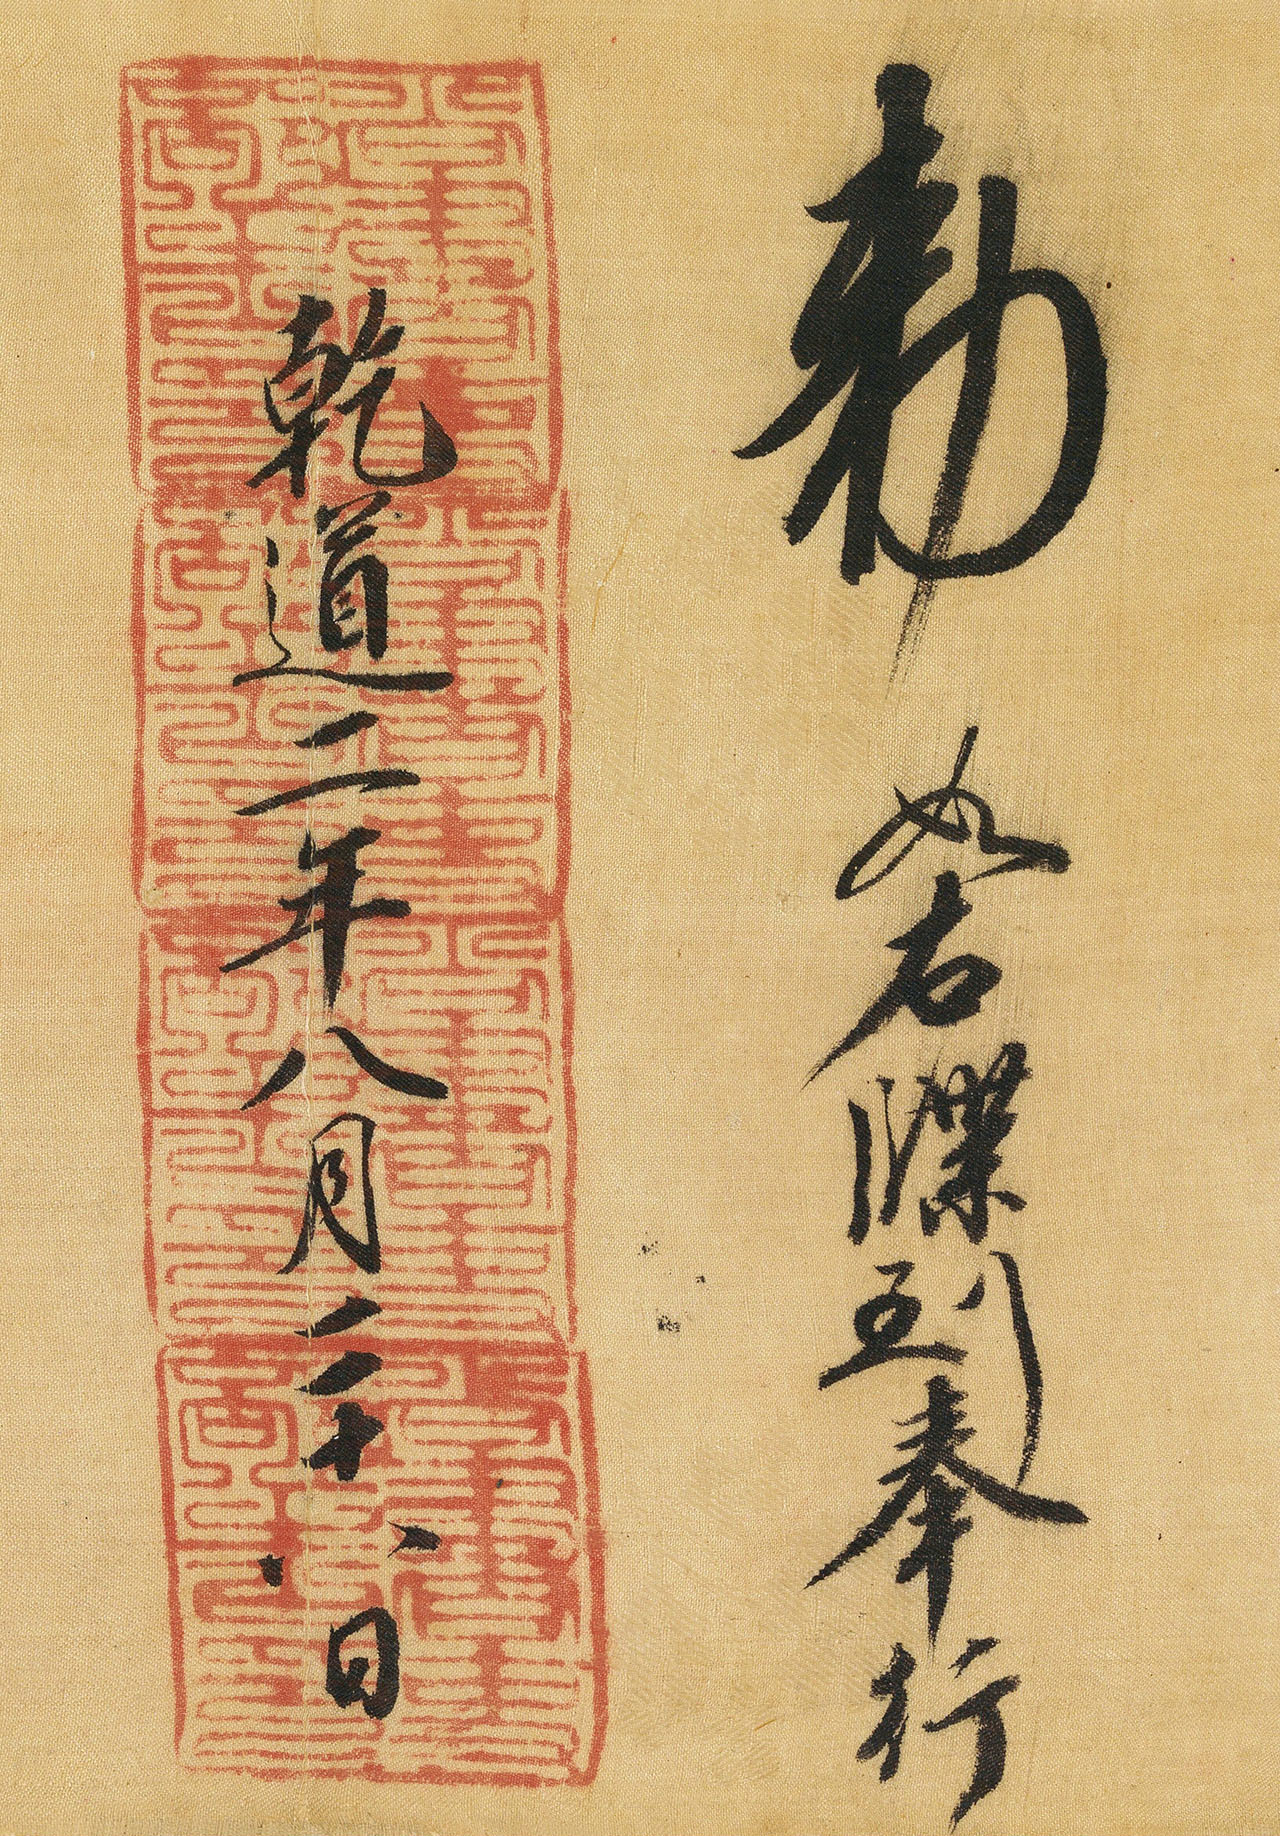 勅如右牒到奉行
乾道二年八月二十八日